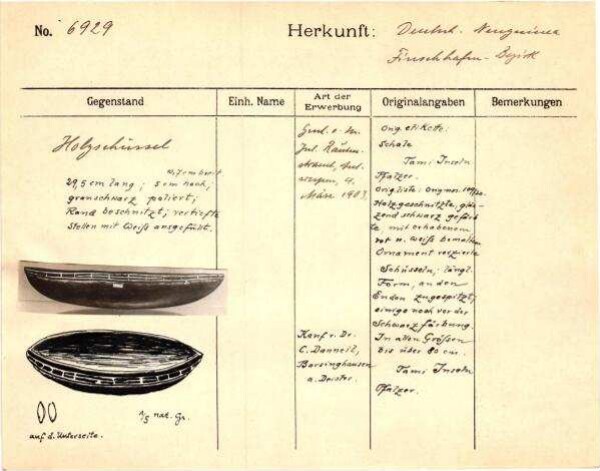 No. 6929
Herkunft: Deutsch. Neuguinea
Finschhafen-Bezirk
Gegenstand
Einh. Name
Art der
Erwerbung
Originalangaben
Bemerkungen
Holzschüssel
breit
29,5 cm lang; 5 cm hoch;
grauschwarz poliert;
Rand beschnitzt; vertiefte
Stellen mit Weiß ausgefüllt.
auf d. Unterseite.
1/5 nat. Gr.
März 1903.
Kauf v. Dr.
C. Danneil,
Barsinghausen
a. Deister.
Orig. etikete:
Schale
Tami Inseln
Pfalzer.
Origliste:
Holzgeschnitzte, glän-
zend schwarz gefärb
te, mit erhabenem
rot u. weiß bemalten
Ornament verzierte
Schüsseln; längl.
Form, an den
Enden zugespitzt;
einige noch vor der
Schwarzfärbung.
In allen Größen
bis über 80 cm.
Tami Inseln
Pfalzer.